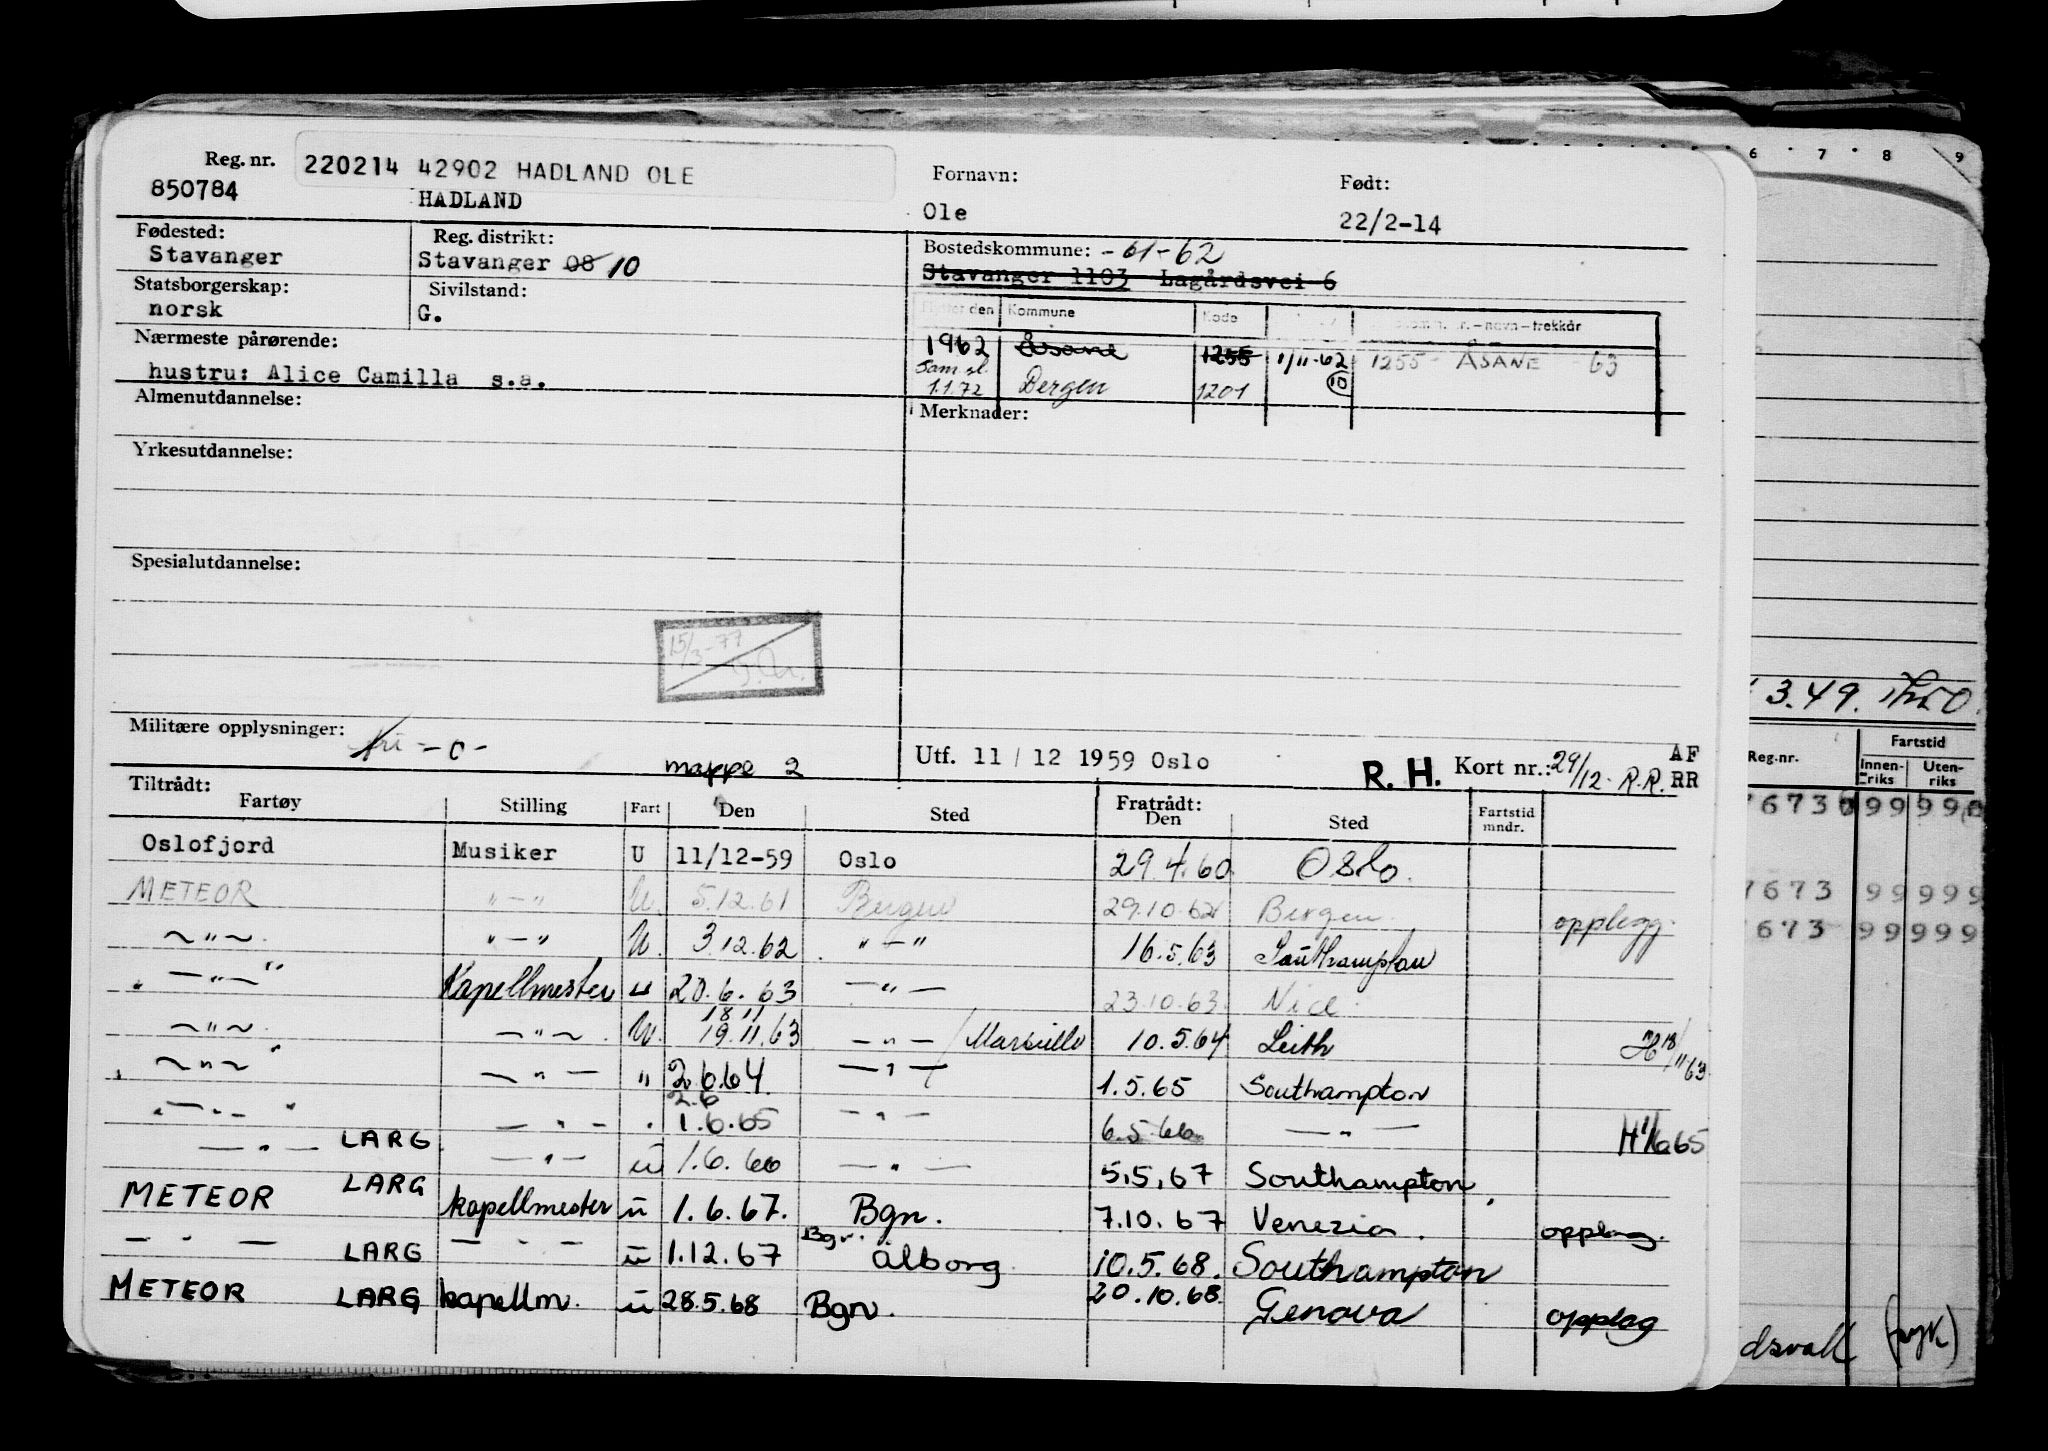 Reg. nr. 220214 42902 HADLAND OLE Fornavn: Født:
850784 HADLAND Ole 22/2-14
Fødested: Reg. distrikt: Bostedskommune: -61-62
Stavanger Stavanger 08 10 Stavanger 1103 Lagårdsvei 6
Statsborgerskap: Sivilstand:
norsk G.
Flyttet den Kommune Kode nr.-navn-trekkår
1962 Åsane 1255 1/11-62 1255 - ÅSANE - 63
Sam.sl. 1.1.72 Bergen 1201 10
Nærmeste pårørende:
hustru: Alice Camilla s.a.
Almenutdannelse: Merknader:
Yrkesutdannelse:
Spesialutdannelse:
15/3-77
Militære opplysninger: fri -c-
mappe 2
Utf. 11 / 12 1959 Oslo R. H. Kort nr.: 29/12- R.R. AF RR
Tiltrådt: Fratrådt:
Fartøy Stilling Fart Den Sted Den Sted Fartstid mndr.
Oslofjord Musiker U 11/12-59 Oslo 29.4.60 Oslo.
METEOR "-" U. 5.12.61 Bergen 29.10.62 Bergen. opplegg.
~"~ "-" U. 3.12.62 "-" 16.5.63 Southampton
-"- Kapellmester u 20.6.63 -"- 23.10.63. Nice.
~"~ -"~ U. 18 11 19.11.63 -"-/Marseille 10.5.64 Leith H 18/11 63
~"~ -"- " 2.6.64 -"- 1.5.65 Southampton
-"- -"- " 2.6 1.6.65 -"- 6.5.66 -"- H 1/6 65
-"- LARG. -"- u 1.6.66 -"- 5.5.67 Southampton
METEOR LARG kapellmester u 1.6.67. Bgn. 7.10.67 Venezia. opplag.
-"- LARG -"- u 1.12.67 Bgn. Ålborg 10.5.68. Southampton
METEOR LARG kapellm. u 28.5.68 Bgn. 20.10.68. Genova opplag
6 7 8 9
3.49.
Reg.nr. Fartstid
Innenriks Utenriks
7673 99 999
7673 99 999
dsvall